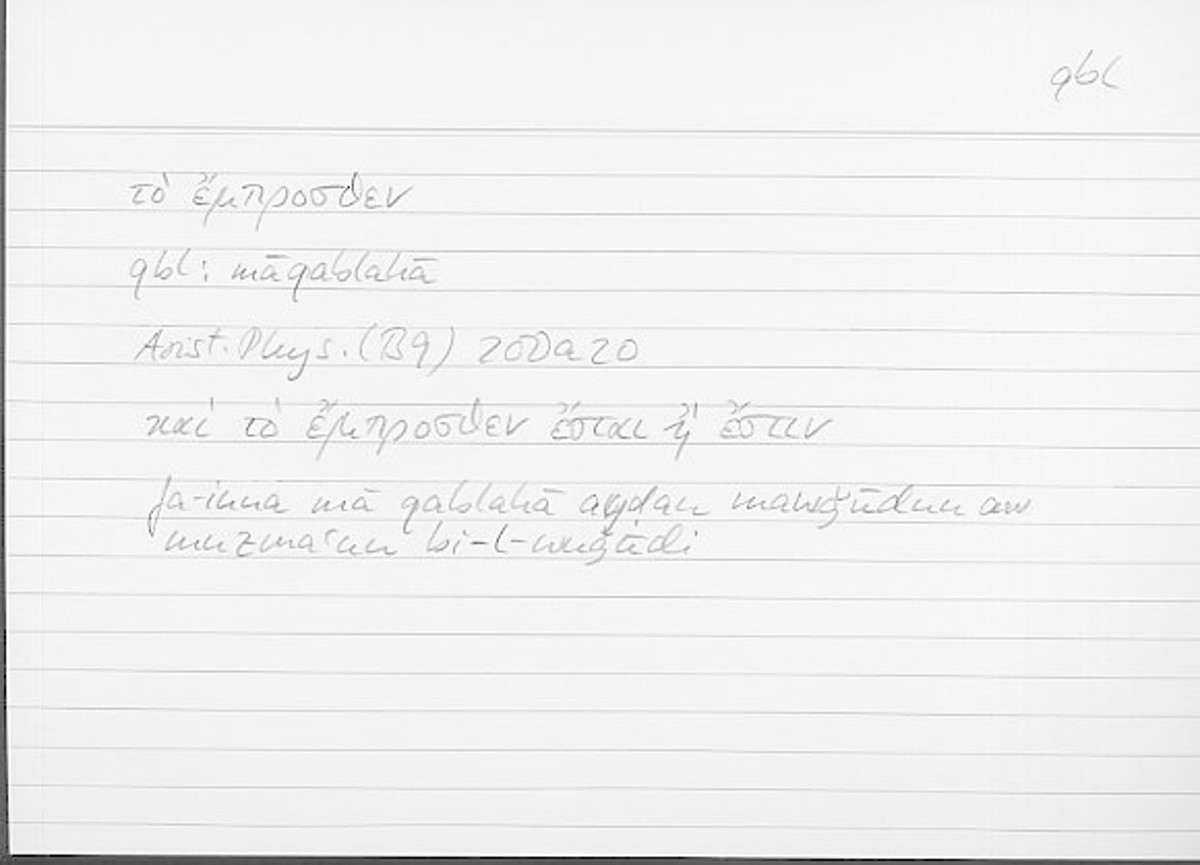 qbl
τὸ ἔμπροσθεν
qbl: mā qablahā
Arist. Phys. (B9) 200a20
καὶ τὸ ἔμπροσθεν ἔσται ἢ ἔστιν
fa-inna mā qablahā ayḍan mawǧūdun aw
muzmaʿun bi-l-wuǧūdi